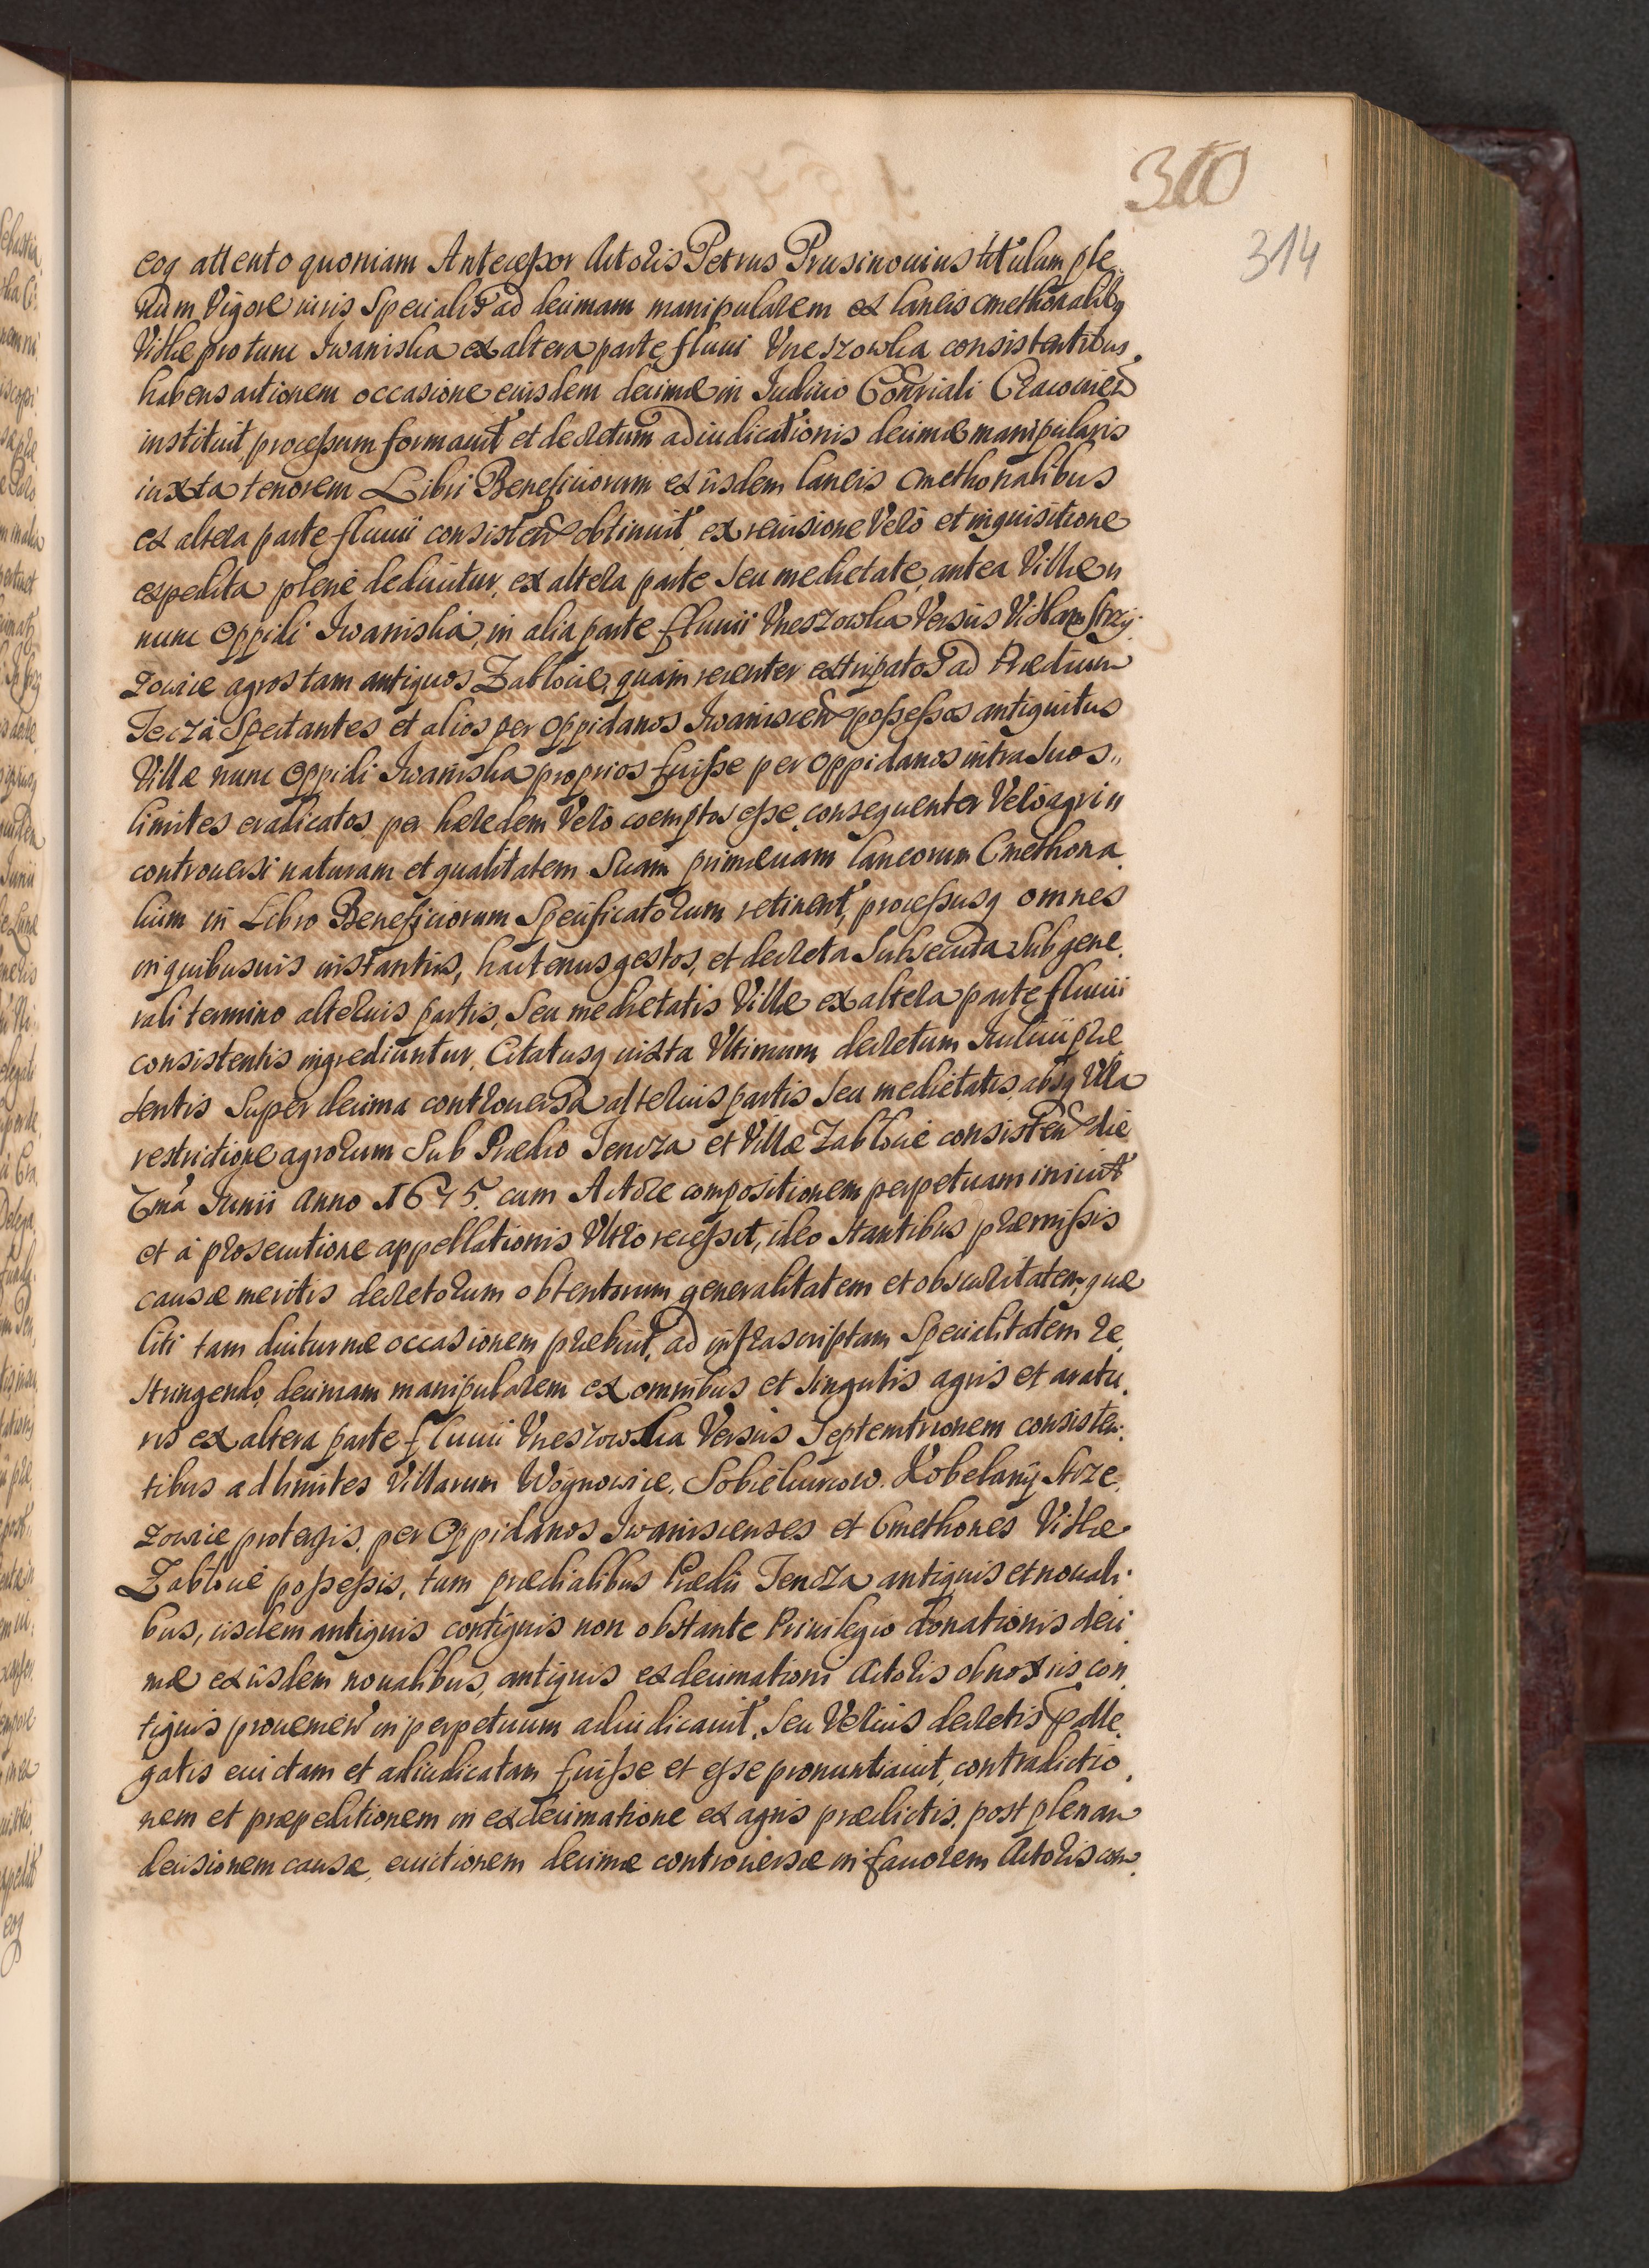 310
314
eoq attento quoniam Antecessor Actoris Petrus Prusinouius titulum ple
num Vigore iuris Specialis ad decimam manipularem ex laneis cmethonalibq
Villæ pro tunc Iwaniska ex altera parte fluui Vneszowka consistentibus
habens actionem occasione eiusdem decimæ in Iudicio Consriali Cracouień
instituit, processum formauit et decretum adiudicationis decimæ manipularis
iuxta tenorem Libri Beneficiorum ex iisdem laneis cmethonalibus
ex altera parte fluuii consisteñ obtinuit, ex reuisione Verò et inquisitione
expedita plenè deducitur, ex altera parte seu medietate, antea Villæ,,
nunc Oppidi Iwaniska, in alia parte fluuii Vneszowka Versus Villam Strzy
zowice agros tam antiquos Zablocie, quàm recenter extirpatos ad Prædium
Teczà Spectantes et alios per Oppidanos Iwanisceñ possessos antiquitus
Villæ nunc Oppidi Iwaniska proprios fuisse per Oppidanos intra suos,,
limites eradicatos, per hæredem Verò coemptos esse, consequenter Verò agri,,
controuersi naturam et qualitatem Suam primæuam laneorum Cmethona
lium in Libro Beneficiorum Specificatorum retinent, processusq omnes
in quibusuis instantiis, hactenus gestos, et decreta Subsecuta Sub gene
rali termino alterius partis, Seu medietatis Villæ ex altera parte fluuii
consistentis ingrediuntur. Citatusq iuxta Vltimum decretum Iudicii præ
sentis Super decima controuersa alterius partis seu medietatis, absq Vlla
restrictione agrorum Sub Prædio Tencza et Villæ Zablocie consisteñ die
7má Iunii Anno 1675. cum Actore compositionem perpetuam iniuit
et à prosecutione appellationis Vltrò recessit, ideo stantibus præmissis
causæ meritis decretorum obtentorum generalitatem et obscuritatem, quæ
liti tam diuturnæ occasionem præbuit, ad infrascriptam Specialitatem re
stringendo, decimam manipularem ex omnibus et singulis agris et aratu
ris ex altera parte fluuii Vneszowska Versus Septemtrionem consisten
tibus ad limites Villarum Wognowice. Sobiekurow. Kobelany Strze
zowice protensis, per Oppidanos Iwaniscenses et Cmethones Villæ
Zablocie possessis, tum prædialibus Prædii Tencza antiquis et nouali
bus, iisdem antiquis contiguis non obstante Priuilegio donationis deci
mæ ex iisdem noualibus, antiquis ex decimationi Actoris obnoxiis con
tiguis prouenień in perpetuum adiudicauit, Seu Verius decretis præalle
gatis euictam et adiudicatam fuisse et esse pronuntiauit, contradictio
nem et præpeditionem in exdecimatione ex agris prædictis, post plenam
decisionem causæ, euictionem decimæ controuersæ in fauorem Actoris con